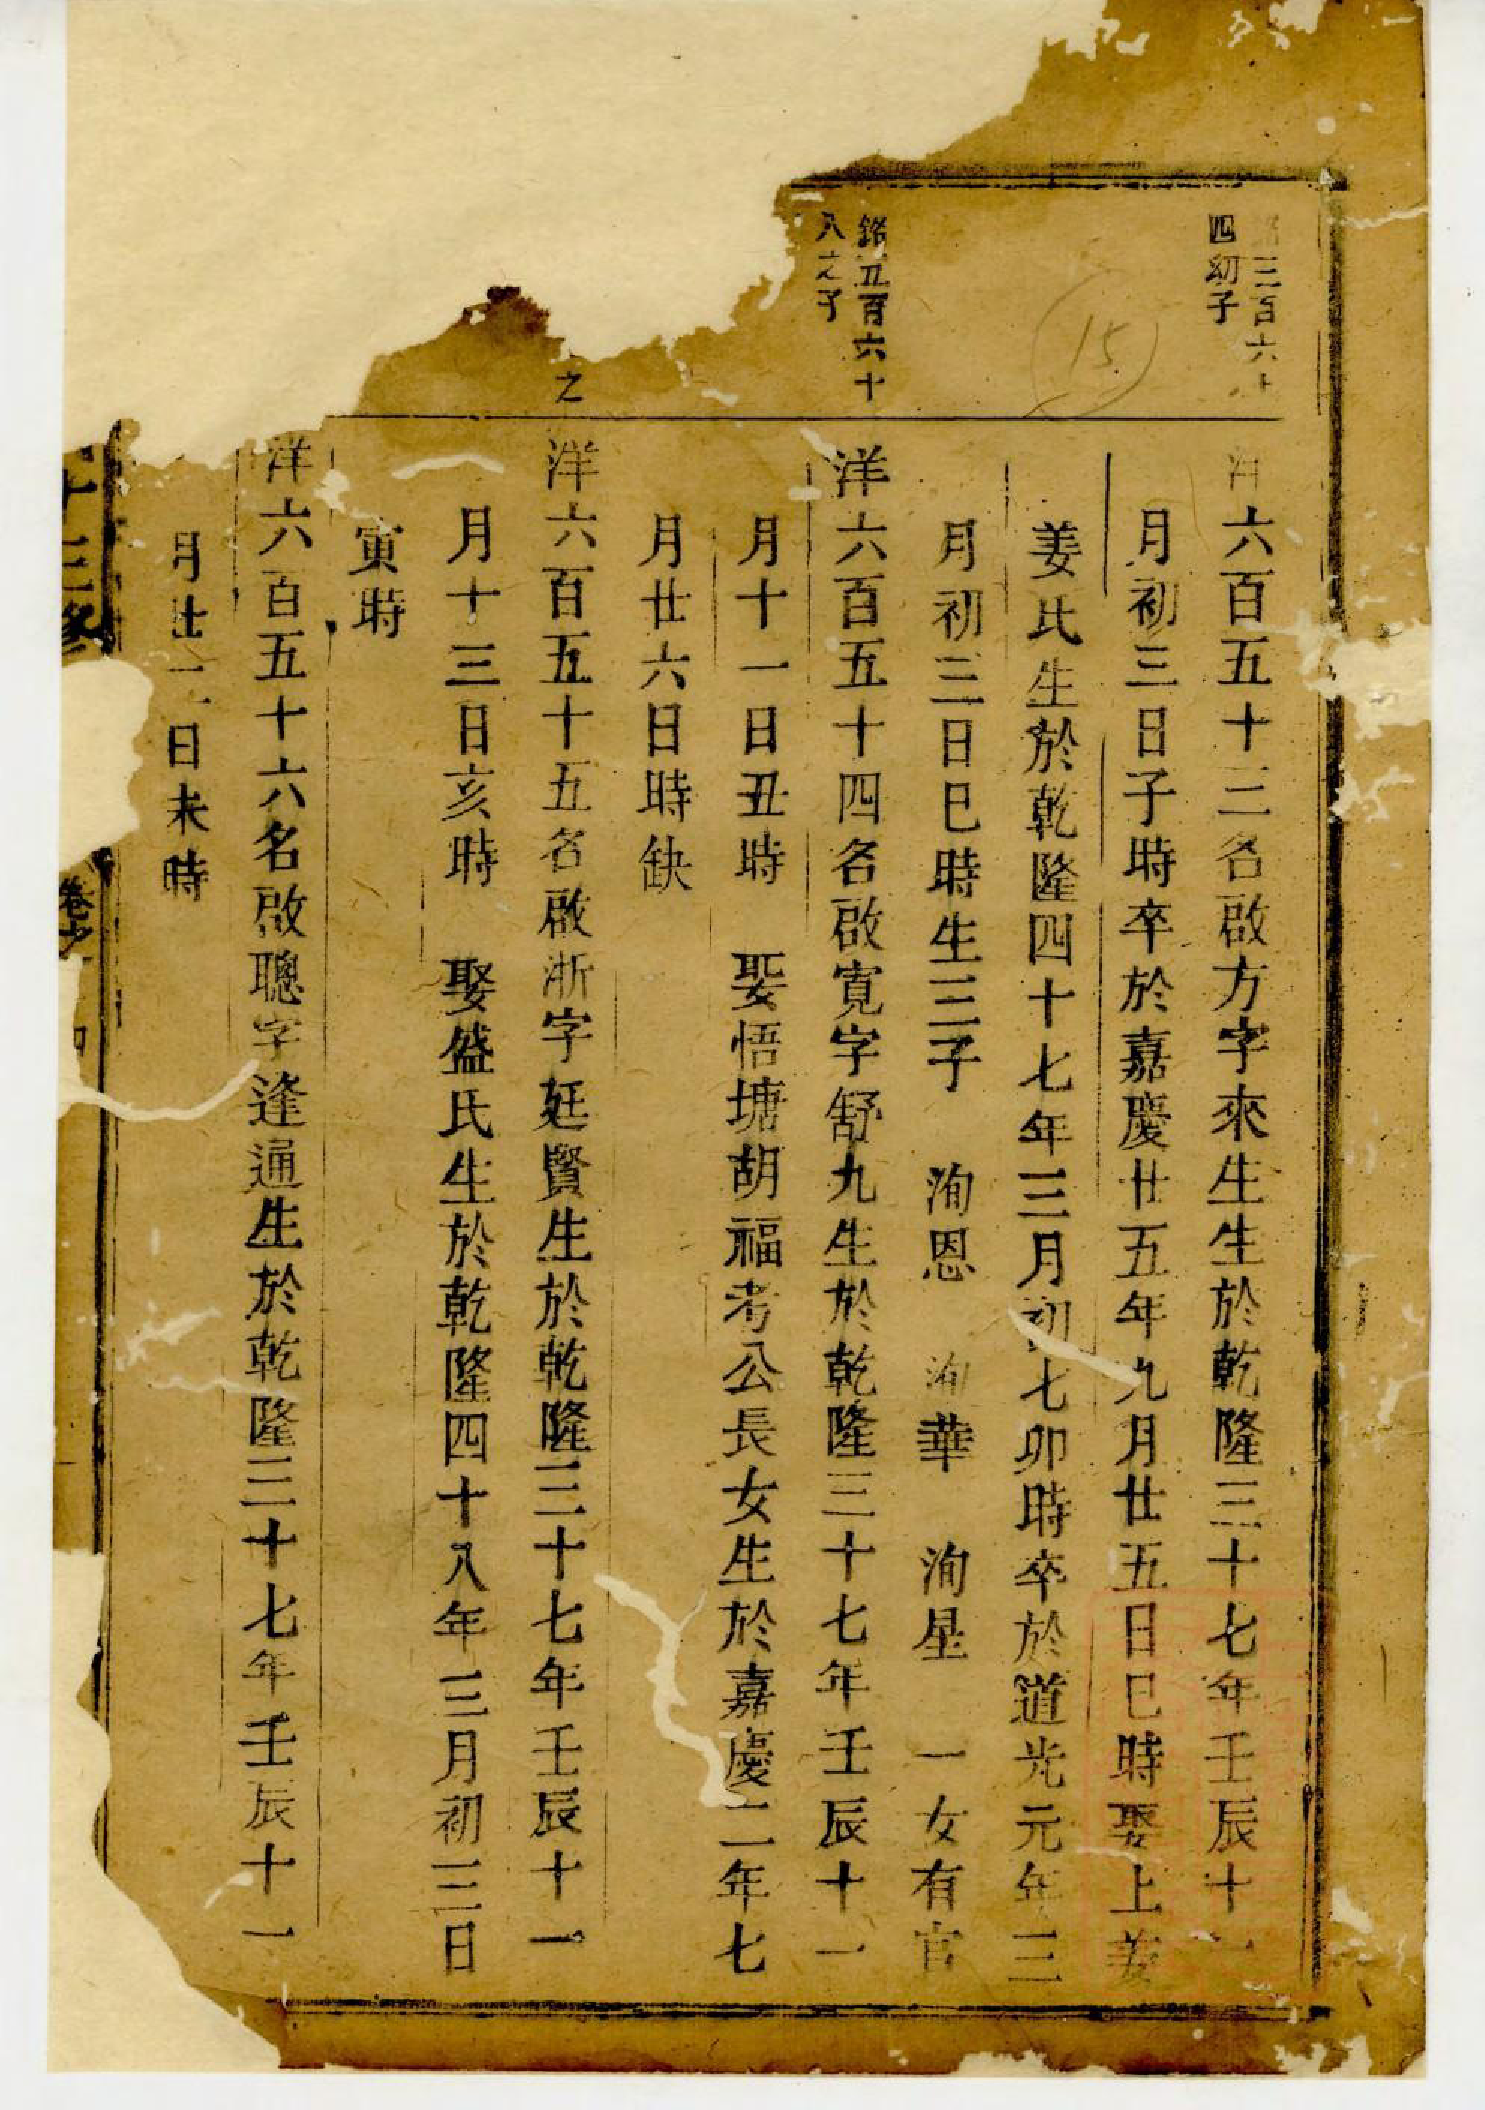 銘三百六十
四幼子
洋六百五十三名啟方字來生生於乾隆三十七年壬辰十一
月初三日子時卒於嘉慶廿五年九月廿五日巳時娶上姜
姜氏生於乾隆四十七年三月初七卯時卒於道光元年三
月初三日巳時生三子 洵恩 洵華 洵星 一女有官
銘五百六十
八之子
洋六百五十四名啟寬字舒九生於乾隆三十七年壬辰十一
月十一日丑時 娶悟塘胡福考公長女生於嘉慶二年七
月廿六日時缺
之
洋六百五十五名啟浙字廷賢生於乾隆三十七年壬辰十一
月十三日亥時 娶盛氏生於乾隆四十八年三月初三日
寅時
洋六百五十六名啟聰字逢通生於乾隆三十七年壬辰十一
月廿二日未時
十三修
卷之
15